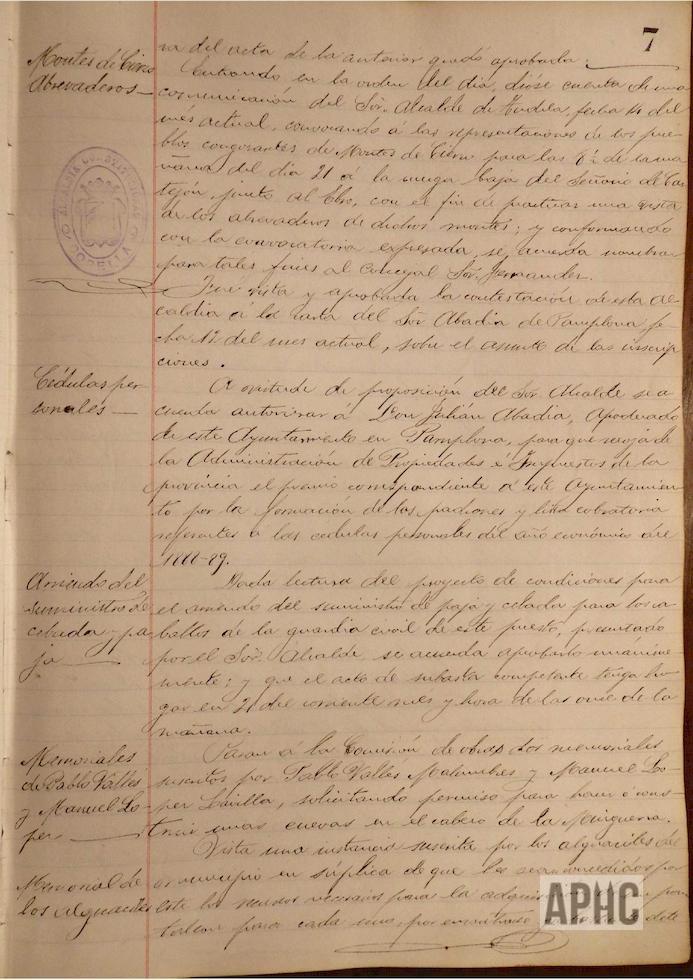 7
Montes de Cierzo
Abrevaderos
ra del acta de la anterior quedó aprobada.
Entrando en la orden del día, dióse cuenta de una
comunicación del Sor. Alcalde de Tudela, fecha 14 del
mes actual, convocando á las representaciones de los pue-
blos congozantes de Montes de Cierzo para las 8 ½ de la ma-
ñana del día 21 á la muga baja del Señorío de Cas-
tejón, junto al Ebro, con el fin de practicar una vista
de los abrevaderos de dichos montes; y conformando
con la convocatoria expresada, se acuerda nombrar
para tales fines al Concejal Sor. Hernandez.
Fué vista y aprobada la contestación de esta Al-
caldía a la carta del Sor Abadia de Pamplona, fe-
cha 12 del mes actual, sobre el asunto de las inscrip-
ciones.
ALCALDÍA CONSTITUCIONAL
CORELLA
Cédulas per-
sonales
A virtud de proposición del Sor. Alcalde se a-
cuerda autorizar á Don Julián Abadia, Apoderado
de este Ayuntamiento en Pamplona, para que recoja de
la Administración de Propiedades é Impuestos de la
provincia el premio correspondiente á este Ayuntamien-
to por la formación de los padrones y lista cobratoria
referentes a las cédulas personales del año económico de
1888-89.
Arriendo del
suministro de
cebada y pa-
ja
Dada lectura del proyecto de condiciones para
el arriendo del suministro de paja y cebada para los ca-
ballos de la guardia civil de este puesto, presentado
por el Sor. Alcalde se acuerda aprobarlo unanime-
mente; y que el acto de subasta competente tenga lu-
gar en 21 del corriente mes y hora de las once de la
mañana.
Memoriales
de Pablo Valles
y Manuel Lo-
pez
Pasan á la Comisión de obras dos memoriales
suscritos por Pablo Valles y Manuel Lo-
pez, solicitando permiso para hacer ó cons-
truir unas cuevas en el cabezo de la
Memorial de
los alguaciles
Vista una instancia suscrita por los alguaciles del
municipio en súplica de que les sean concedidos por
este los recursos necesarios para la
para cada uno, por encontrarse
APHC